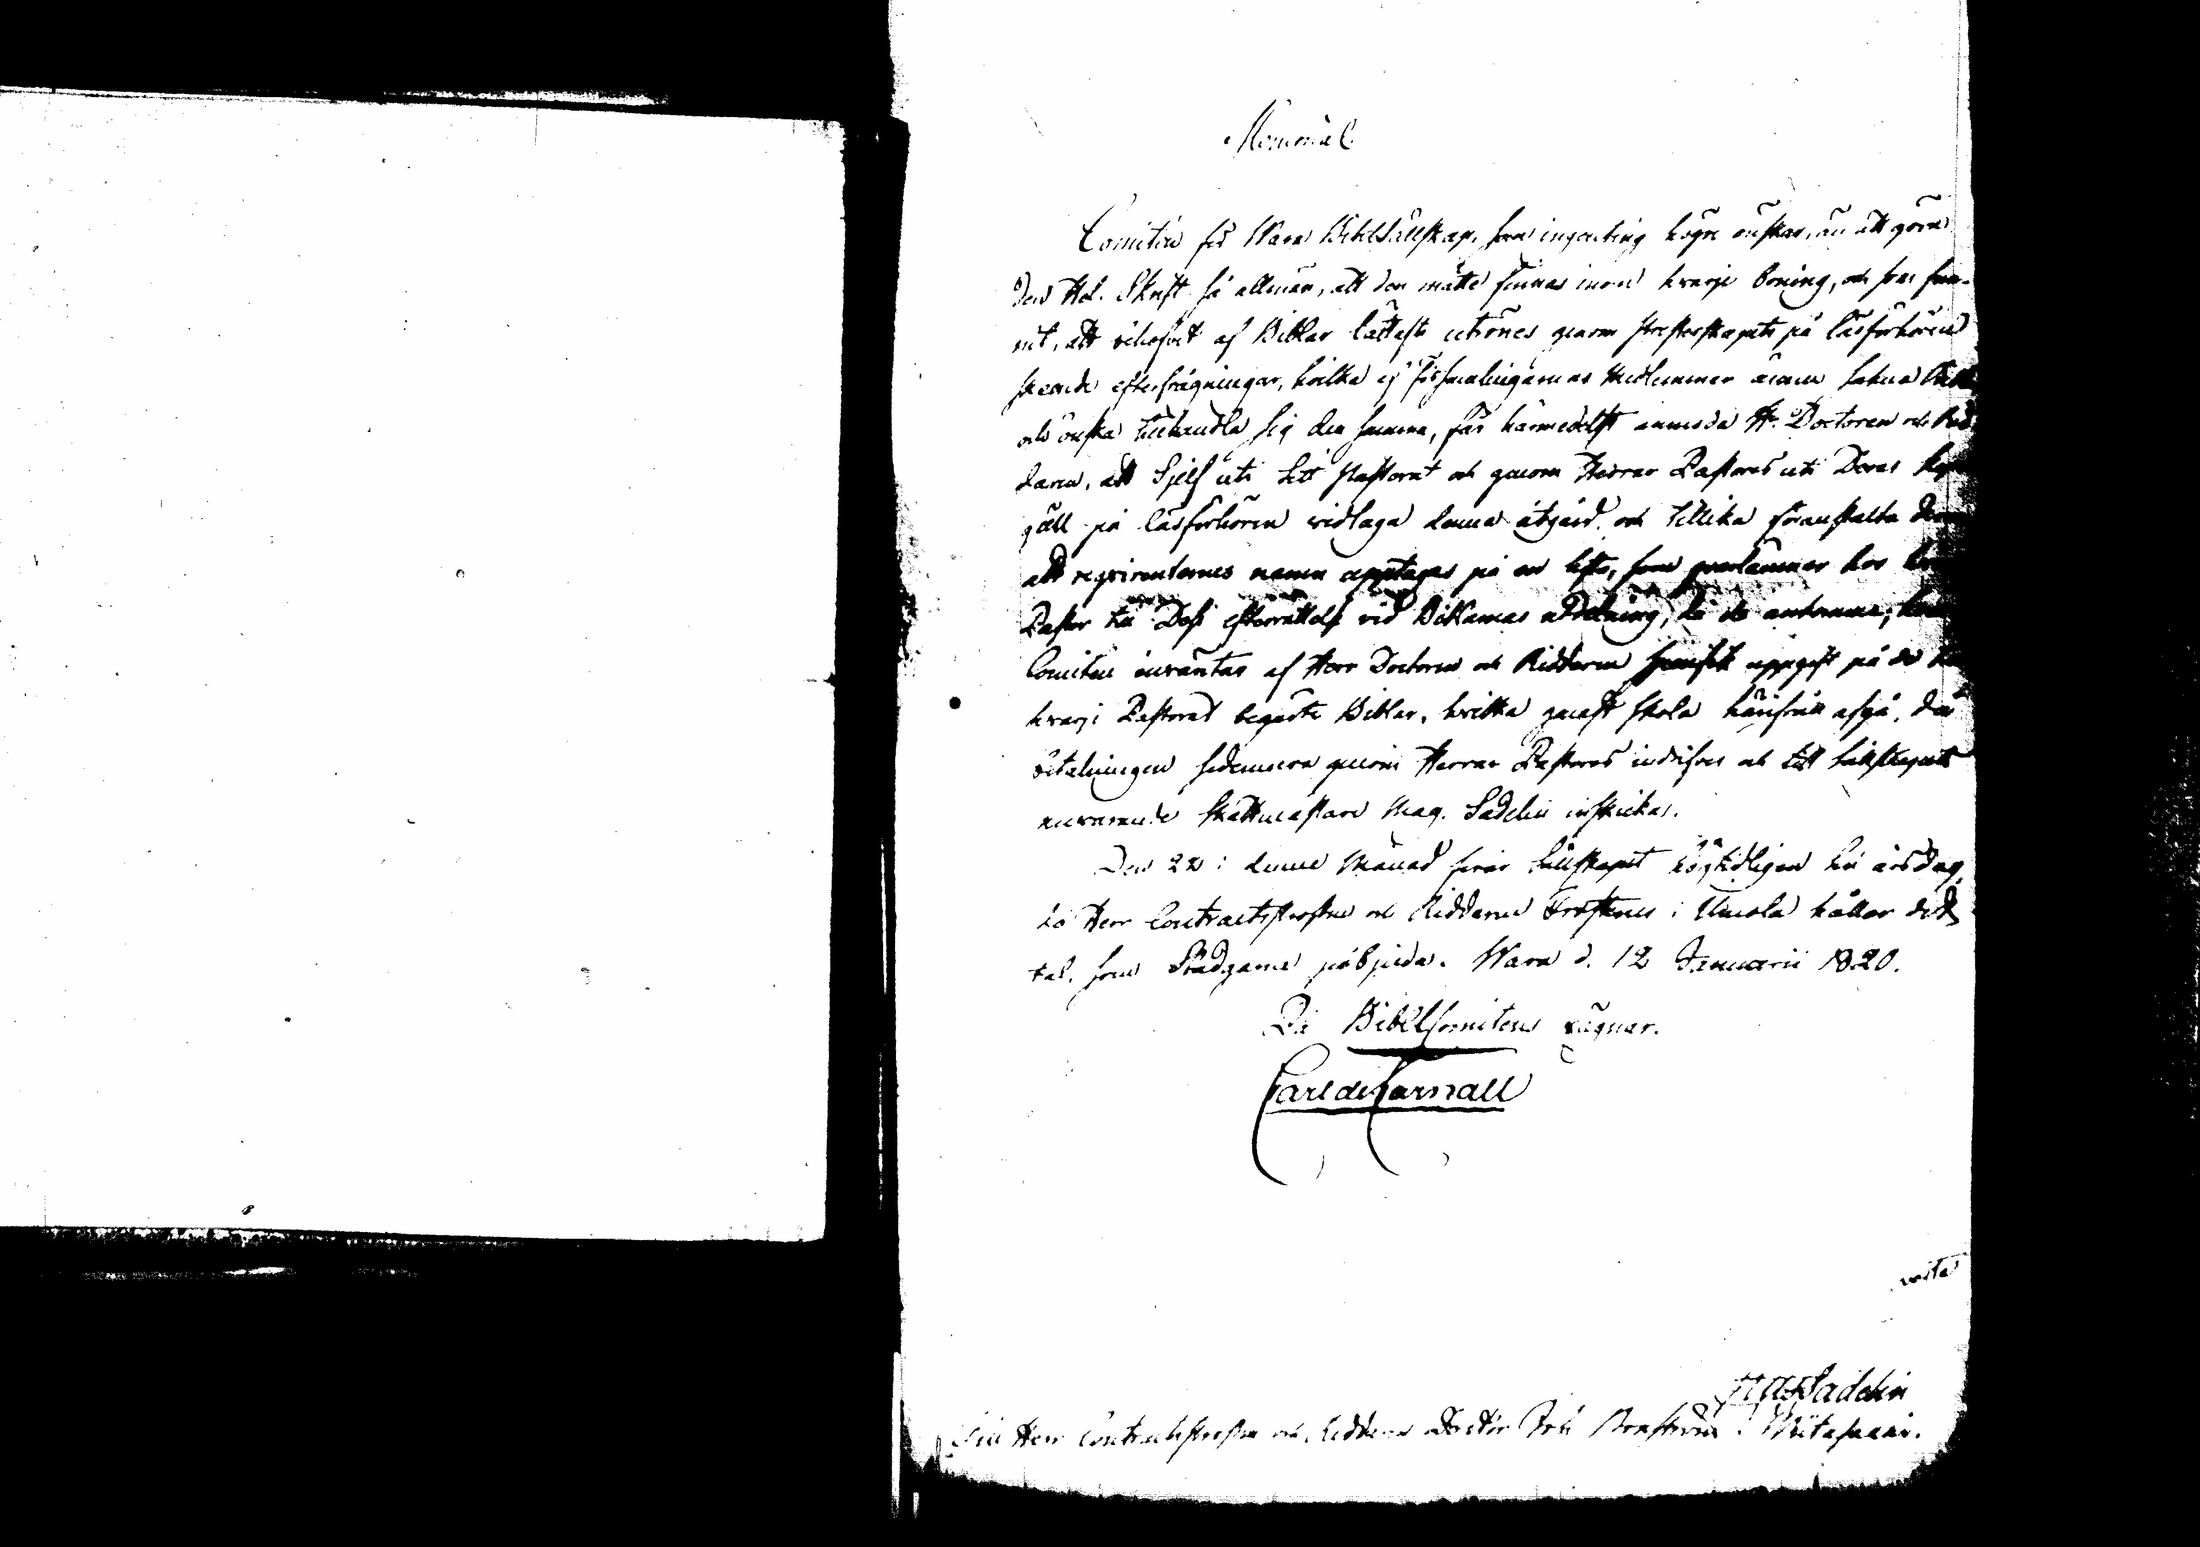 Memorial.
Comitén för Wasa Bibelsällskap, som ingenting högre önskar, än att göra
den Hel. Skrift så allmän, att den måtte finnas inom hvarje boning, och som fun-
nit, att behofvet af Biblar lättast utrönes genom Presterskapets på läsförhören
skeende efterfrågningar, hvilka af församlingarnas Medlemmar ännu sakna
och önska tillhandla sig den samma, får härmedelst anmoda Hr. Doctoren och Rid-
daren, att Sjelf uti Sitt Pastorat och genom Herrar Pastores uti Deras
gäll på läsförhören vidtaga denna åtgärd, och tillika föranstalta
att reqvirenternes namn upptagas på en lista, som qvarlämnas hos
Pastor till Dess efterrättelse vid Biblarnas utdelning, då de ankomma,
Comitén inväntar af Herr Doctoren och Ridderen uppgift på de
hvarje Pastorat begärte Biblar, hvilka genast skola härifrån afgå, då
betalningen sedermera genom Herrar Pastores indrifves och till Sällskapets
nuvarande Skattmästare Mag. Sadelin inskickas.
Den 22 i denna Månad firar Sällskapet högtidligen sin årsdag,
då Herr Contractsprosten och Riddaren i Umola håller det
tal, som Stadgarne påbjuda. Wasa d. 12 Januarii 1820.
På BibelComitens vägnar.
Carl de Carnall
verte
Sadelin
Till Herr Contractsprosten och Riddaren Doctor Joh i Wöitasaari.